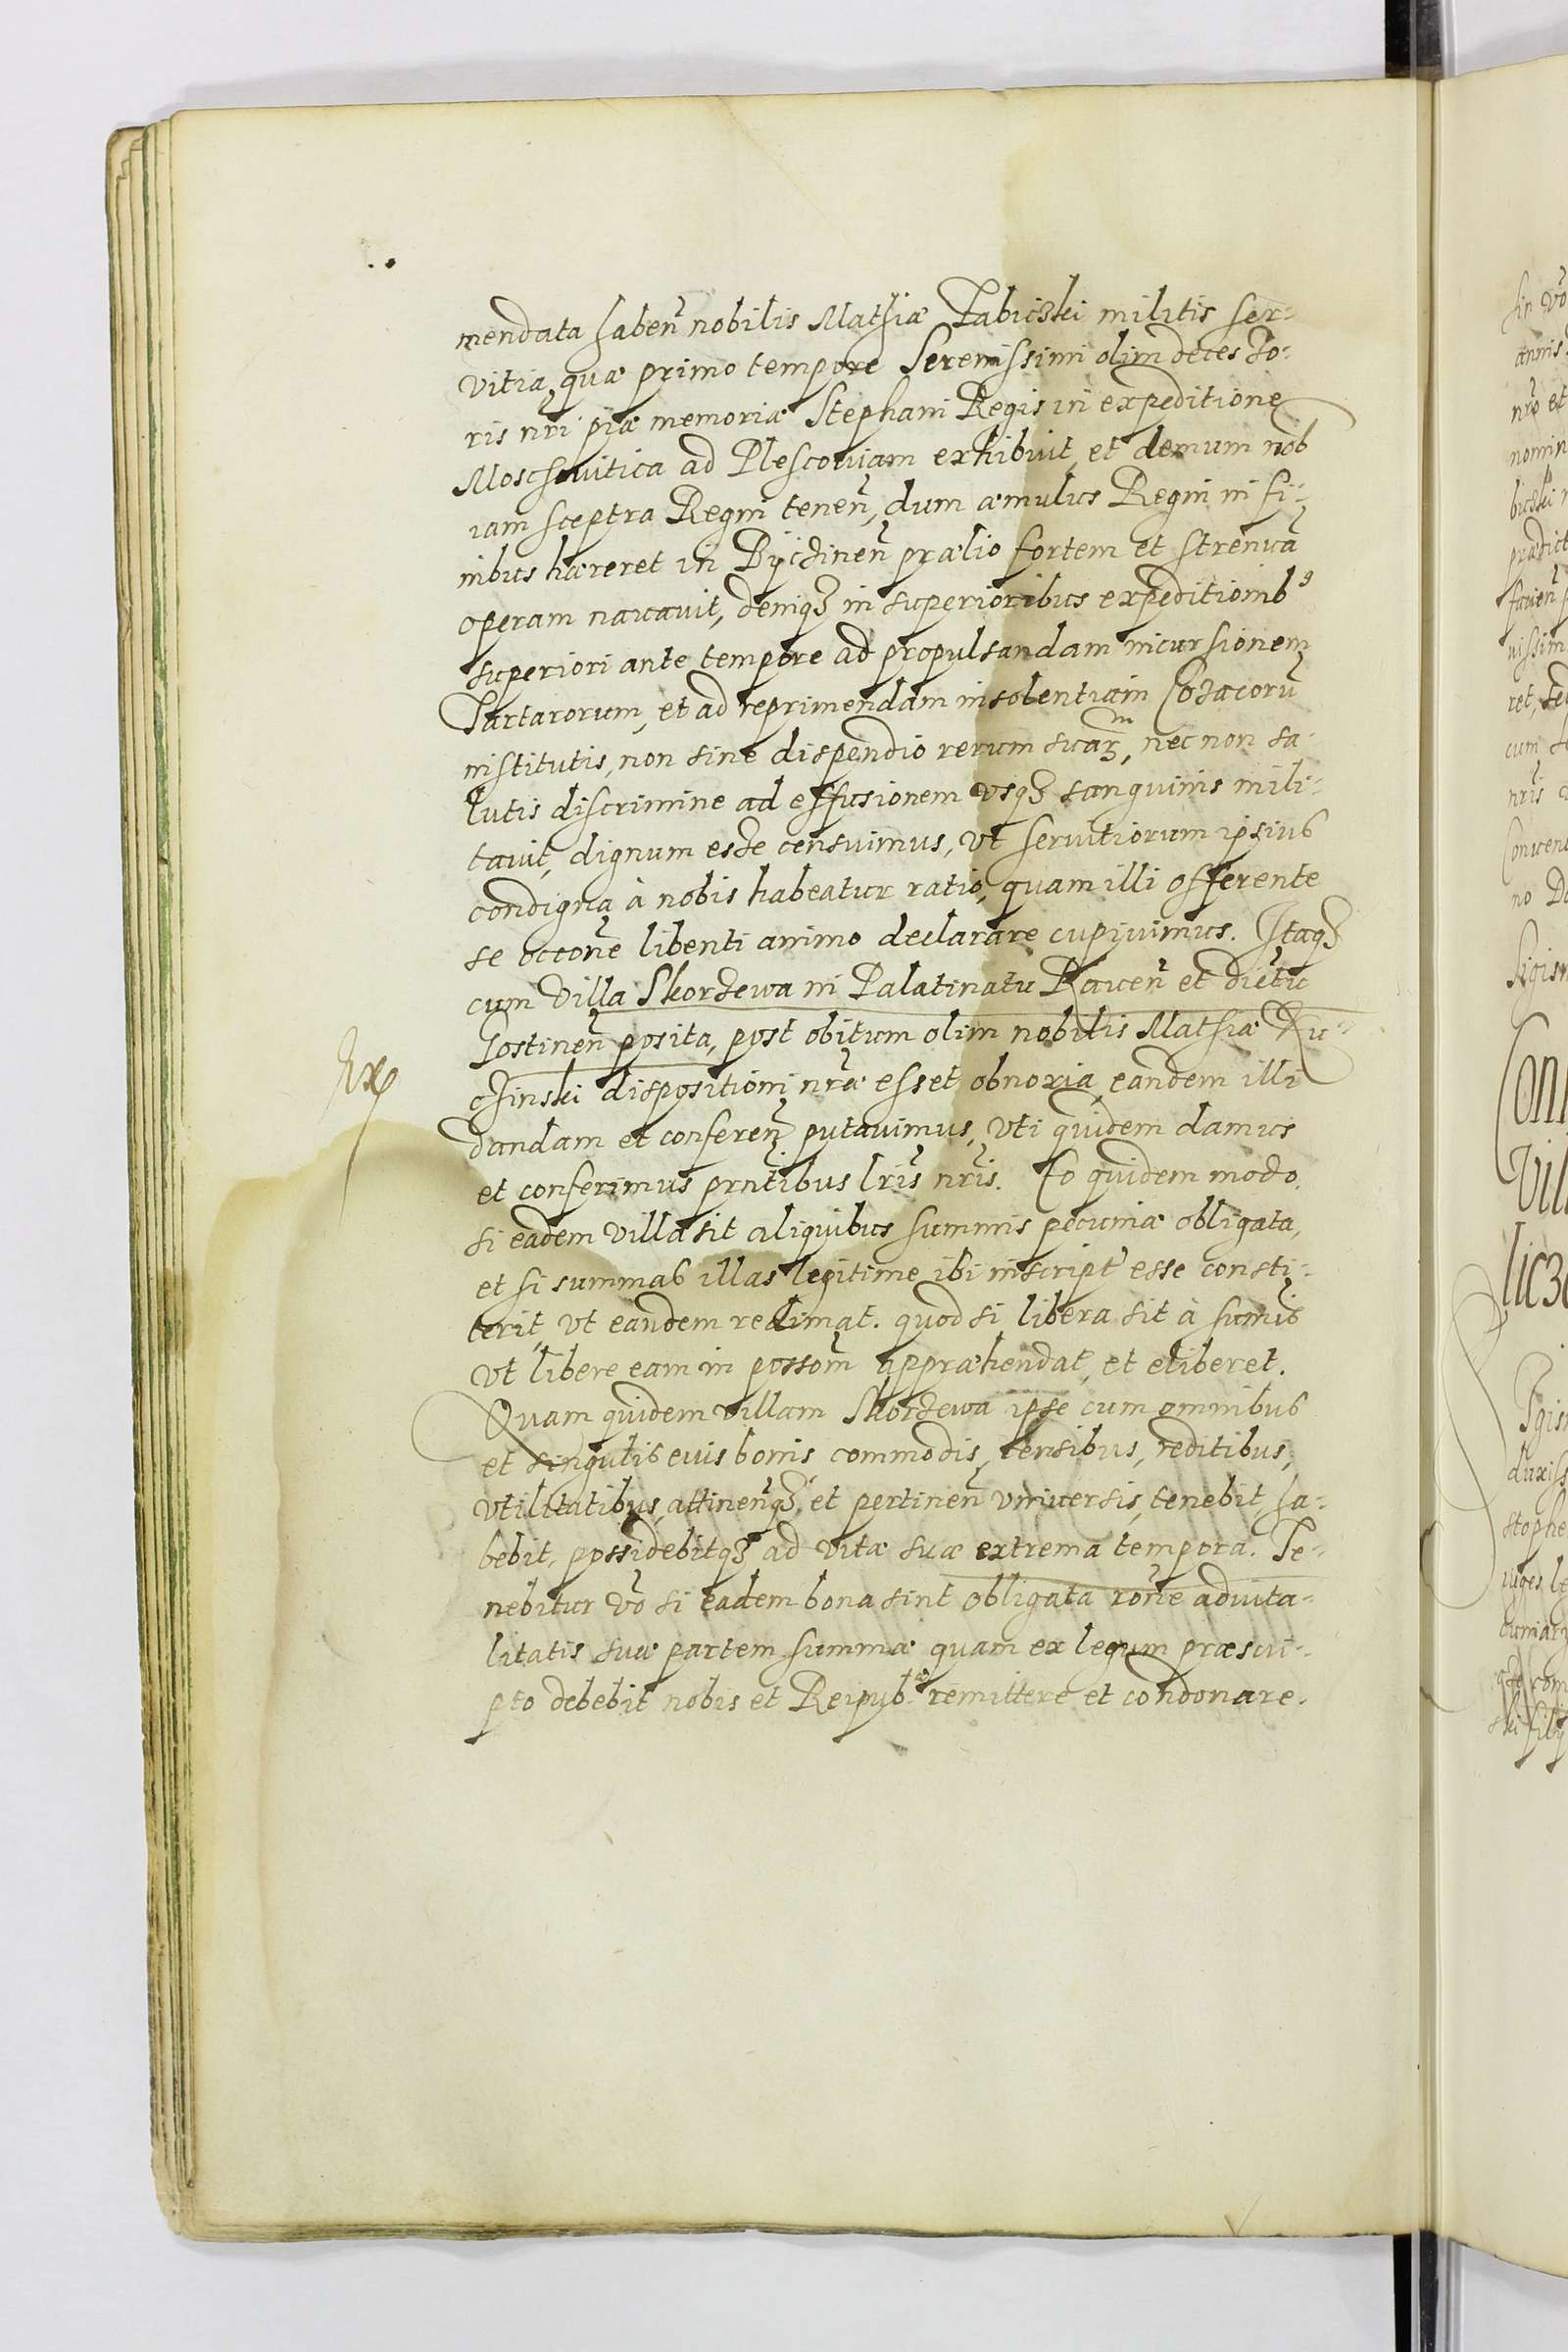 mendata haben̄ nobilis Mathiæ Babiczki militis ser-
vitia, quæ primo tempore Serenissimi olim decesso-
ris nr̄i piæ memoriæ Stephani Regis in expeditione
Moschovitica ad Plescoviam exhibuit, et demum nob
iam sceptra Regni tenen̄, dum æmulus Regni in fi-
nibus hæreret in Byczinen̄ prælio fortem et strenuā
operam navavit, deniqꝫ in superioribus expeditionibꝰ
superiori ante tempore ad propulsandam incursionem
Tartarorum, et ad reprimendam insolentiam Cozacorū
institutis, non sine dispendio rerum suaꝝ, nec non sa-
lutis discrimine ad effusionem vsqꝫ sanguinis mili-
tavit, dignum esse censuimus, vt servitiorum ipsius
condigna à nobis habeatur ratio, quam illi offerente
se occōne libenti animo declarare cupivimus. Itaqꝫ
cum villa Skorzewa in Palatinatu Raven̄ et districtu
Gostinen̄ posita, post obitum olim nobilis Mathiæ Ku-
chinski dispositioni nr̄æ esset obnoxia, eandem illi
Rx
dandam et conferen̄ putavimus, vti quidem damus
et conferimus prn̄tibus lr̄is nr̄is. Eo quidem modo,
si eadem villa sit aliquibus summis pecuniæ obligata,
et si summas illas legitime ibi inscript̄ esse consti-
terit, vt eandem redimat. quod si libera sit à sum̄is
vt libere eam in possom̄ appræhendat, et eliberet.
Quam quidem villam Skorzewa ipse cum omnibus
et singulis euis bonis commodis, censibus, reditibus,
vtilitatibus, attinen̄qꝫ et pertinen̄ vniversis, tenebit, ha-
bebit, possidebitqꝫ ad vitæ suæ extrema tempora. Te-
nebitur vō si eadem bona sint obligata rōne advita-
litatis suæ partem summæ quam ex legum præscri-
pto debebit nobis et Reipub.æ remittere et condonare.